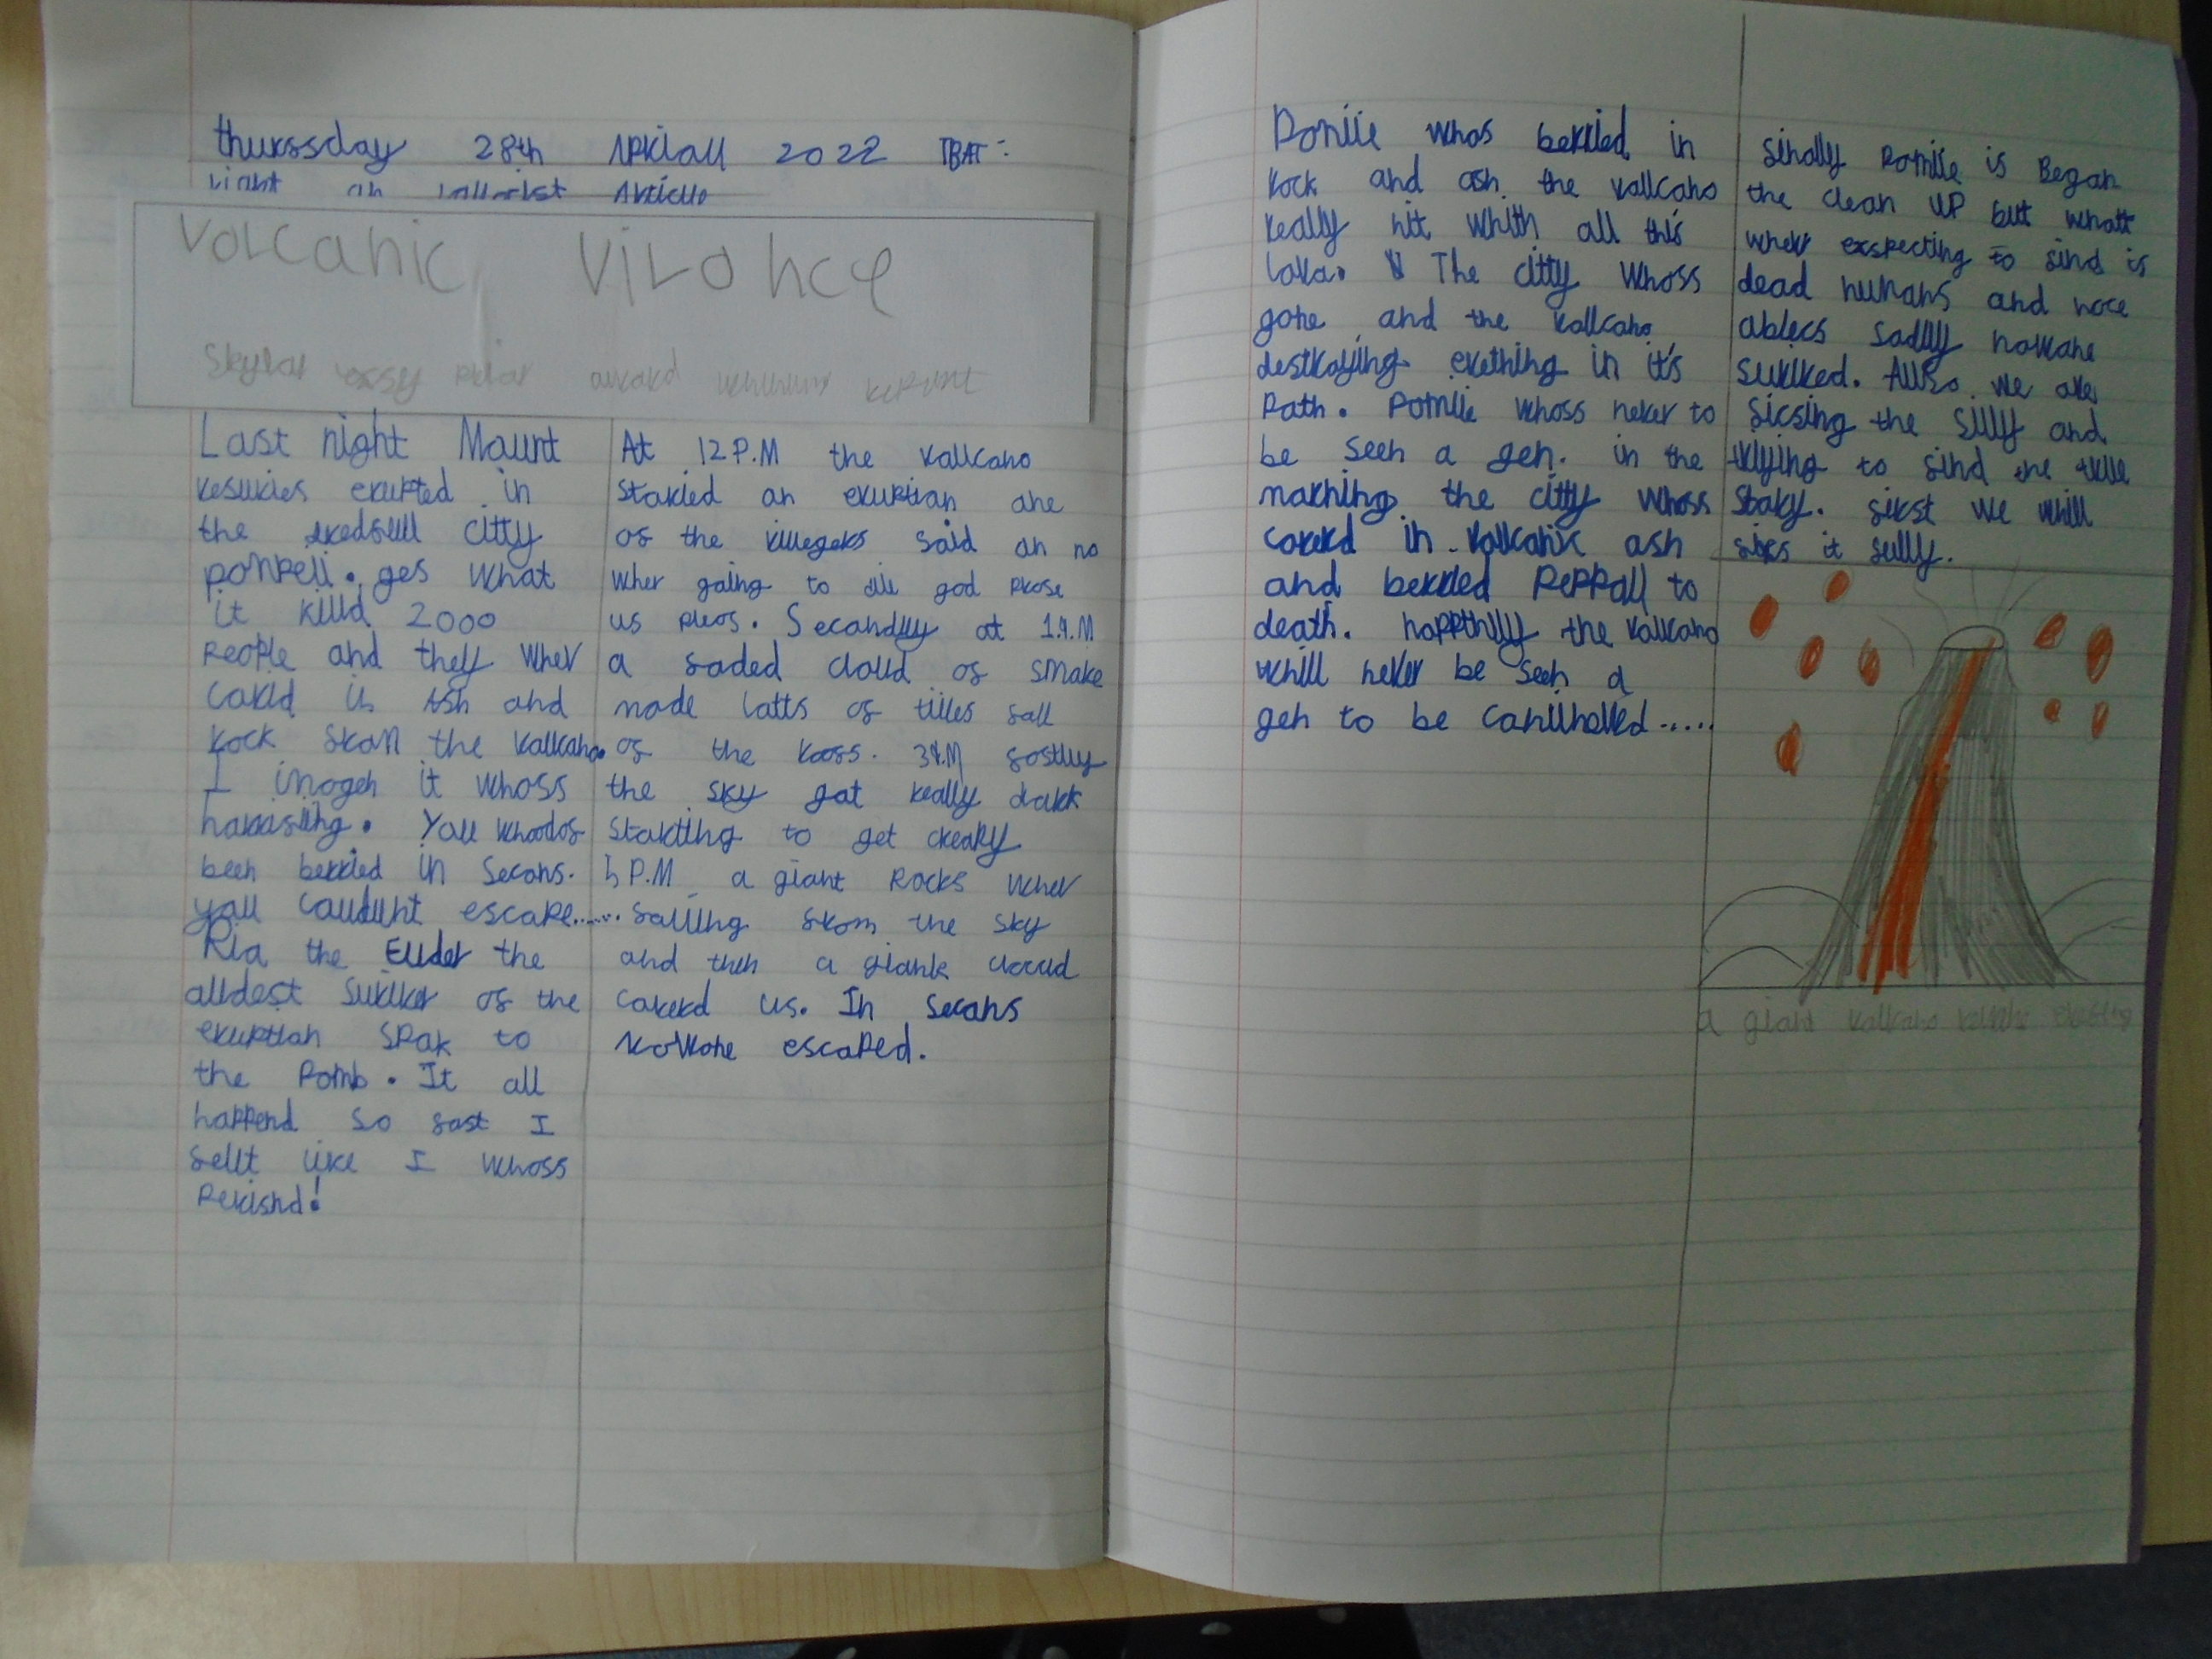 thurssday 28th Aprilall 2022 TBAT:
Volcanic Virolnce
Last night Mount
vesuvies erupted in
the citty
pompeii. ges what
it killd 2000
people and they wher
coverd in Ash and
rock from the vallcano.
I imogen it whoss
harrasfing. You whoodof
been berried in Secons.
you couldunt escape......
Pla the Ellder the
alldest surliver of the
eruption spak to
the Pomb. It all
happend so fast I
fellt like I whoss
Perishd!
At 12P.M the vallcano
starled an eruption one
of the villegers said oh no
wher going to die god
us pleos. Secandlly at 1.P.M
a faded cloud of smoke
made lotts of tilles fall
of the roofs. 3P.M fostlly
the sky got really darkk
starting to get creary
5 P.M a giant Rocks wher
falling from the sky
and then a giank cloud
coverd us. In Secons
nowone escaped.
Pomiie whos berried in
rock and ash the vallcano
really hit whith all this
lava. The citty whoss
gone and the vallcano
destroying evething in it's
Path. Pomiie whoss never to
be seen a gen. in the
morning the citty whoss
coverd in vollcanic ash
and berried peppall to
death. happthilly the vallcano
whill never be seen a
gen to be continhelled.....
finally Pomiie is Began
the clean up but whatt
wher exspecting to find is
dead humans and noce
ablecs sadlly nowone
surlived. Allso we are
ficsing the silly and
trlying to find the
Story. first we whill
it fully.
a giant vallcano